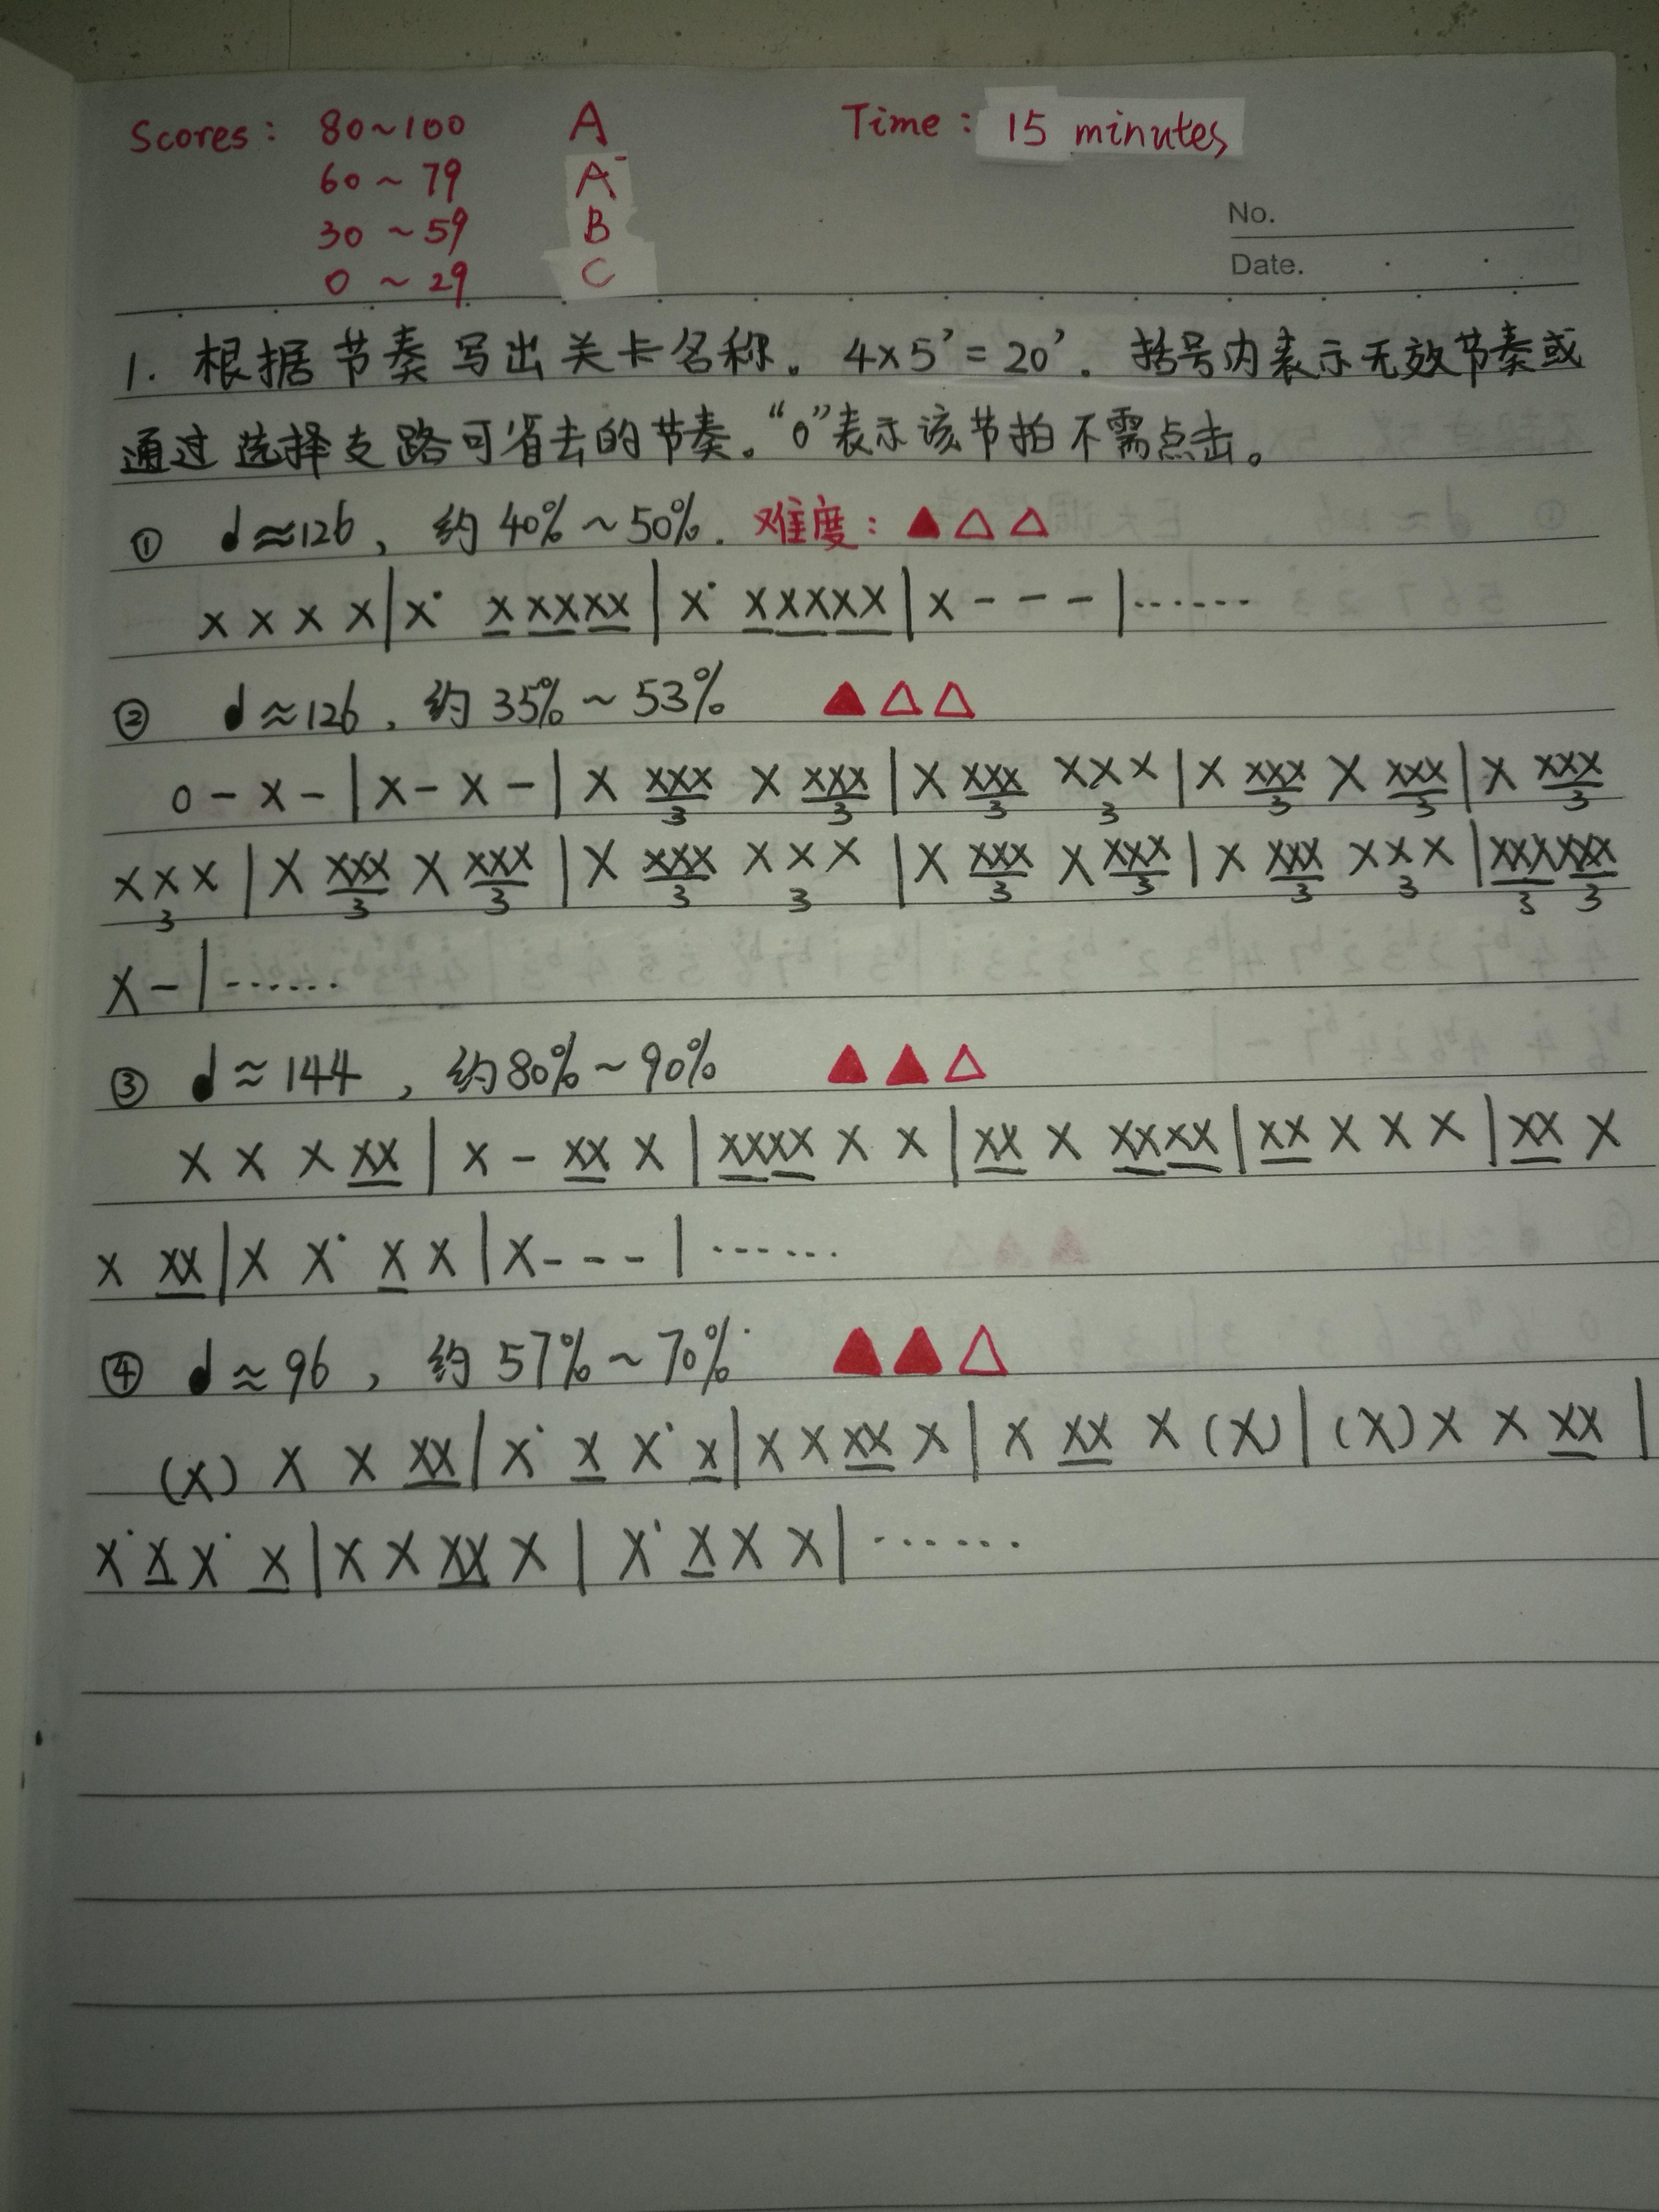 Scores: 80~100 A Time: 15 minutes
60~79 A⁻
30~59 B
0~29 C
No.
Date.
1. 根据节奏写出关卡名称。4×5'=20'. 括号内表示无效节奏或
通过选择支路可省去的节奏。“0”表示该节拍不需点击。
① ♩≈126, 约40%~50%. 难度: ▲△△
X X X X | X· X XXXX | X· XXXXX | X - - - | ······
② ♩≈126, 约35%~53% ▲△△
0 - X - | X - X - | X XXX3 X XXX3 | X XXX3 XXX3 | X XXX3 X XXX3 | X XXX3
XXX3 | X XXX3 X XXX3 | X XXX3 X X X3 | X XXX3 X XXX3 | X XXX3 XXX3 | XXX3XXX3
X - | ······
③ ♩≈144, 约80%~90% ▲▲△
X X X XX | X - XX X | XXXX X X | XX X XXXX | XX X X X | XX X
X XX | X X· X X | X - - - | ······
④ ♩≈96, 约57%~70% ▲▲△
(X) X X XX | X· X X· X | X X XX X | X XX X (X) | (X) X X XX |
X· X X· X | X X XX X | X· X X X | ······